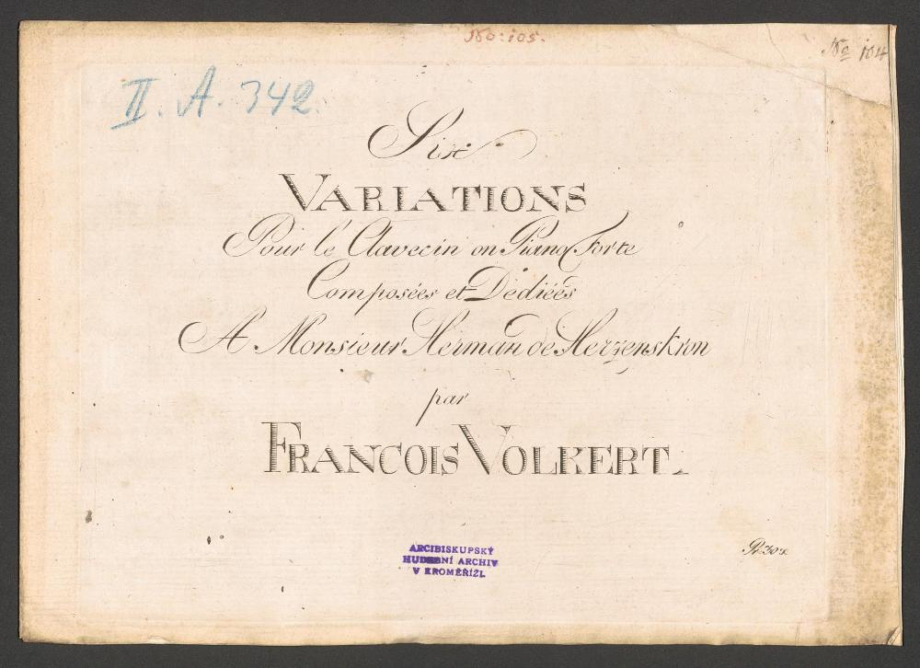 No: 105.
No 104
II. A. 342
Six
VARIATIONS
Pour le Clavecin on Piano Forte
Composées et Dediées
A Monsieur Herman de Herzenskron
par
FRANCOIS VOLKERT.
ARCIBISKUPSKÝ
HUDEBNÍ ARCHIV
V KROMĚŘÍŽI.